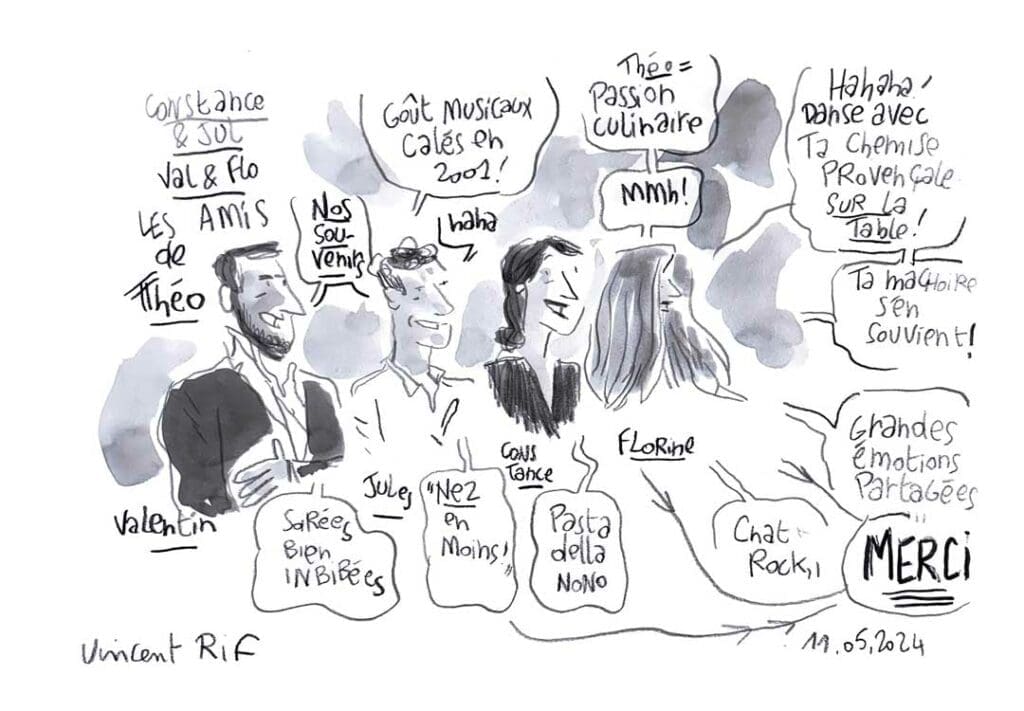 Constance
& Jul
Val & Flo
LES AMIS
de
Théo
Nos
Sou-
venirs
Goût Musicaux
calés en
2001!
haha
Théo =
Passion
culinaire
MMh!
Hahaha!
Danse avec
Ta Chemise
PRovençale
SUR La
Table!
Ta maCHoire
s'en
souvient!
Valentin
SoiRées
Bien
INBiBées
JULes
"Nez
en
Moins!"
CONS
Tance
Pasta
della
NoNo
FLoRine
Chat
Rock,,
Grandes
émotions
PartaGées
MERCi
Vincent RiF
11.05.2024